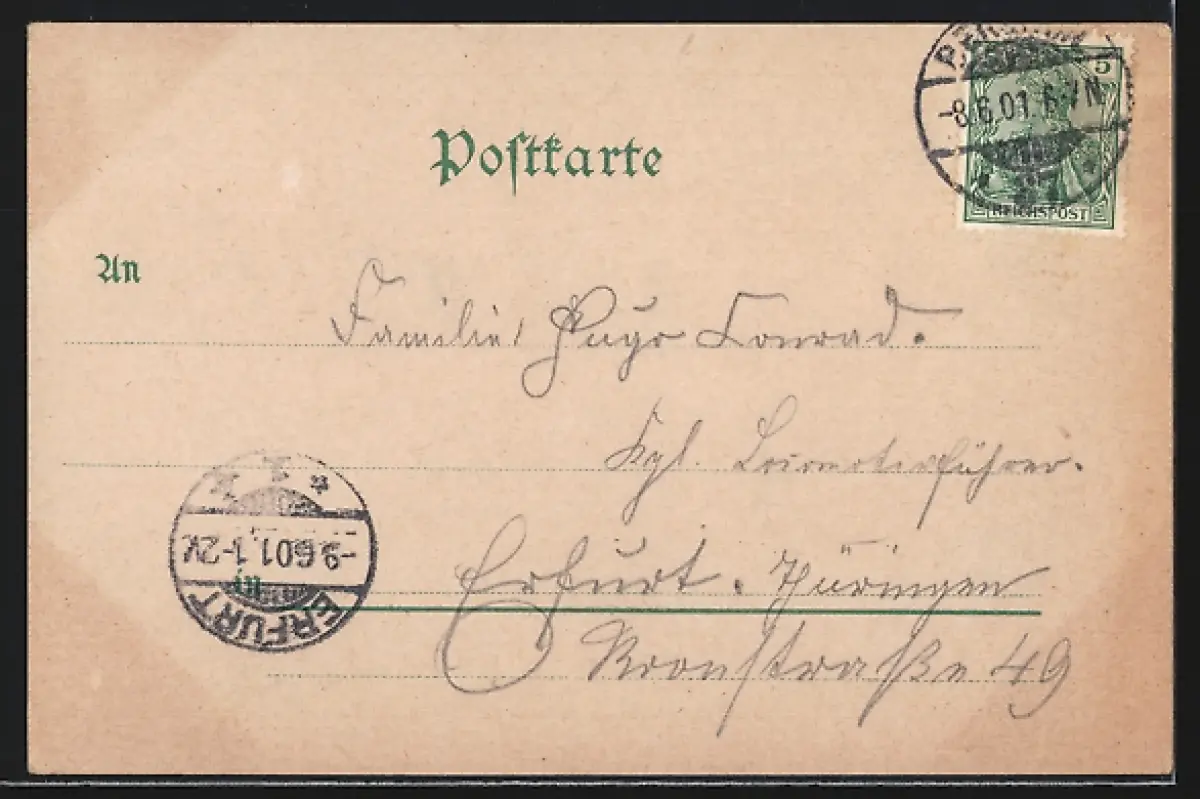 5
-8.6.01.6-7N.
REICHSPOST
Postkarte
An
Familie Hugo Conrad.
Kgl. Locomotivführer.
-9.6.01.1-2V.
in
ERFURT
Erfurt. Thüringen
Roonstraße 49